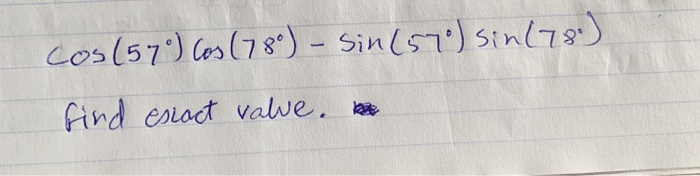 cos(57°) cos(78°) - sin(57°) sin(78°)
find exact value.